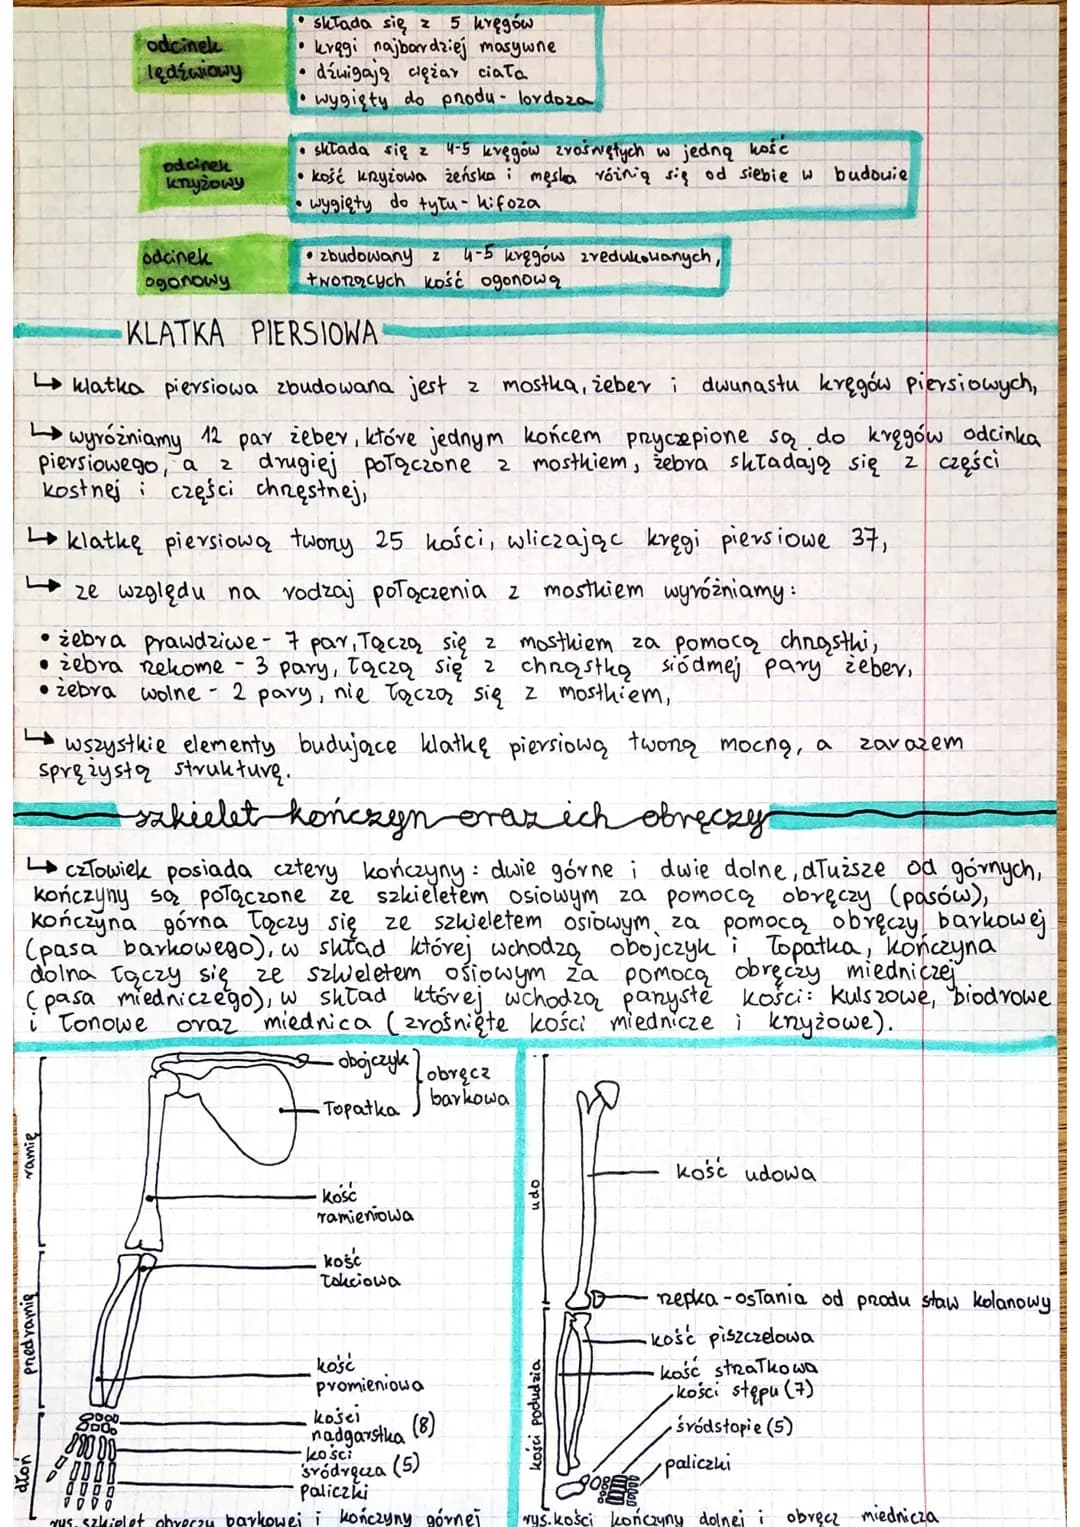 odcinek
lędźwiowy
• składa się z 5 kręgów
• kręgi najbardziej masywne
• dźwigają ciężar ciała
• wygięty do przodu - lordoza
odcinek
krzyżowy
• składa się z 4-5 kręgów zrośniętych w jedną kość
• kość krzyżowa żeńska i męska różnią się od siebie w budowie
• wygięty do tyłu - kifoza
odcinek
ogonowy
• zbudowany z 4-5 kręgów zredukowanych,
tworzących kość ogonową
KLATKA PIERSIOWA
↳ klatka piersiowa zbudowana jest z mostka, żeber i dwunastu kręgów piersiowych,
↳ wyróżniamy 12 par żeber, które jednym końcem przyczepione są do kręgów odcinka
piersiowego, a z drugiej połączone z mostkiem, żebra składają się z części
kostnej i części chrzęstnej,
↳ klatkę piersiową tworzy 25 kości, wliczając kręgi piersiowe 37,
↳ ze względu na rodzaj połączenia z mostkiem wyróżniamy:
• żebra prawdziwe - 7 par, łączą się z mostkiem za pomocą chrząstki,
• żebra rzekome - 3 pary, łączą się z chrząstką siódmej pary żeber,
• żebra wolne - 2 pary, nie łączą się z mostkiem,
↳ wszystkie elementy budujące klatkę piersiową tworzą mocną, a zarazem
sprężystą strukturę.
szkielet kończyn oraz ich obręczy
↳ człowiek posiada cztery kończyny: dwie górne i dwie dolne, dłuższe od górnych,
kończyny są połączone ze szkieletem osiowym za pomocą obręczy (pasów),
kończyna górna łączy się ze szkieletem osiowym za pomocą obręczy barkowej
(pasa barkowego), w skład której wchodzą obojczyk i łopatka, kończyna
dolna łączy się ze szkieletem osiowym za pomocą obręczy miedniczej
(pasa miedniczego), w skład której wchodzą parzyste kości: kulszowe, biodrowe
i łonowe oraz miednica (zrośnięte kości miednicze i krzyżowe).
ramię
przedramię
dłoń
obojczyk
łopatka
obręcz
barkowa
kość
ramieniowa
kość
łokciowa
kość
promieniowa
kości
nadgarstka (8)
kości
śródręcza (5)
paliczki
rys. szkielet obręczy barkowej i kończyny górnej
udo
kości podudzia
kość udowa
rzepka - osłania od przodu staw kolanowy
kość piszczelowa
kość strzałkowa
kości stępu (7)
śródstopie (5)
paliczki
rys. kości kończyny dolnej i obręcz miednicza